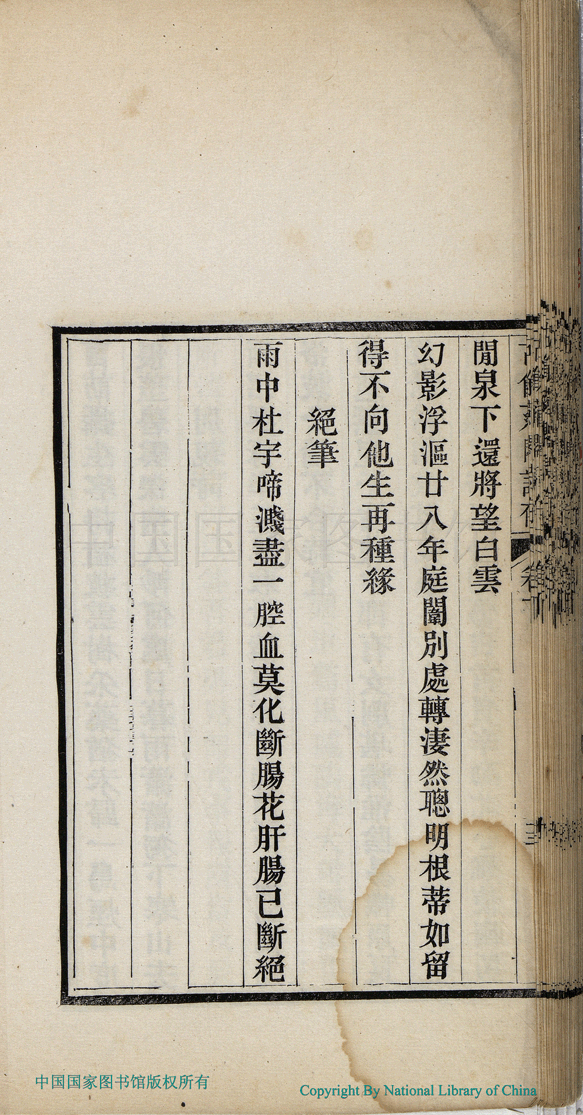 閒泉下還將望白雲
幻影浮漚廿八年庭闈別處轉淒然聰明根蒂如留
得不向他生再種緣
絕筆
雨中杜宇啼濺盡一腔血莫化斷腸花肝腸已斷絕
中国国家图书馆版权所有
Copyright By National Library of China